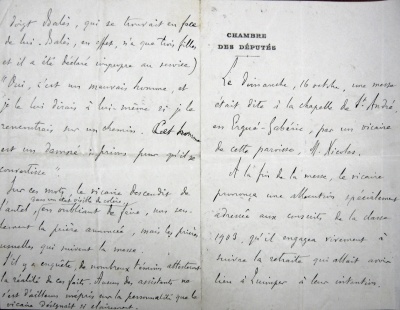 CHAMBRE
DES DÉPUTÉS
Le Dimanche, 16 octobre, une messe
était dite à la chapelle de St André,
en Ergué-Gabéric, par un vicaire
de cette paroisse, M. Nicolas.
A la fin de la messe, le vicaire
prononça une allocution spécialement
adressée aux conscrits de la classe
1903, qu'il engagea vivement à
suivre la retraite qui allait avoir
lieu à Quimper à leur intention.
doigt Balès, qui se trouvait en face
de lui. Balès, en effet, n'a que trois filles
et il a été déclaré impropre au service)
"Oui, c'est un mauvais homme, et
je le lui dirais à lui-même si je le
rencontrais sur un chemin. Cet homme
est un damné, prions pour qu'il se
convertisse".
Sur ces mots, le vicaire descendit de
l'autel, oubliant de faire, non seu-
lement la prière annoncée, mais les prières
usuelles qui suivent la messe.
S'il y a enquête, de nombreux témoins attesteront
la réalité de ces faits. Aucun des assistants ne
s'est d'ailleurs mépris sur la personnalité que le
vicaire désignait si clairement.